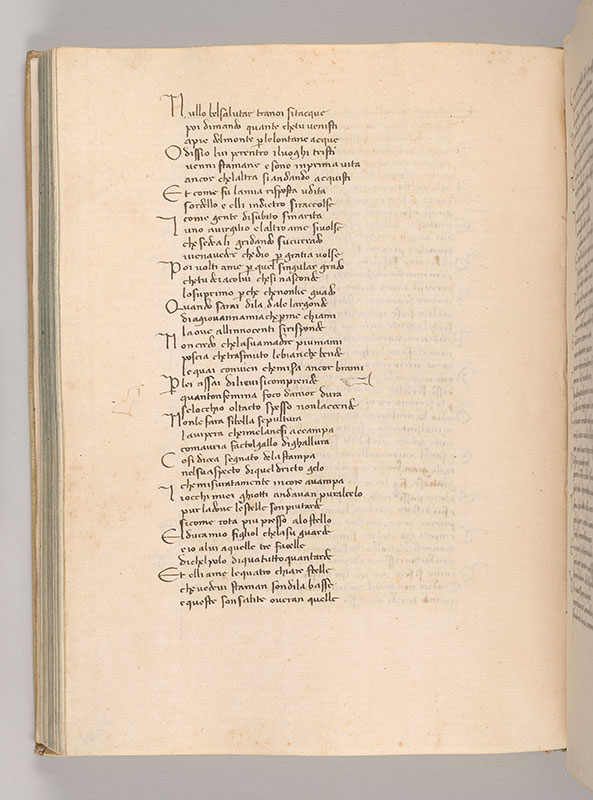 Nullo bel salutar tra noi si tacque
poi dimando quante che tu venisti
apie del monte p le lontane acque
O dissio lui per entro i luoghi tristi
venni stamane e sono in prima vita
ancor che laltra si andando acquisti
Et come fu la mia risposta udita
sordello e elli indietro si raccolse
come gente di subito smarita
Luno a virgilio e laltro a me si volse
che sedea li gridando su currado
vien a veder che dio p gratia volse
Poi volti a me p quel singular grado
che tu dei a colui che si nasconde
lo suo primo p che che non li e guado
Quando sarai di la da le large onde
di a giovanna mia che p me chiami
la ove all innocenti si risponde
Non credo che la sua madre piu mi ami
poscia che trasmuto le bianche bende
le quai convien che misera ancor brami
P lei assai di lieve si comprende
quanto in femina foco damor dura
se locchio o l tacto spesso non laccende
Non le fara si bella sepultura
la vipera che i melanesi accampa
com avria facto l gallo di ghallura
Cosi dicea segnato de la stampa
nel suo aspecto di quel dricto zelo
che misuratamente in core avampa
I occhi miei ghiotti andavan pur al celo
pur la dove le stelle son piu tarde
si come rota piu presso a lo stello
El duca mio figliol che la su guarde
e io a lui a quelle tre facelle
di che l polo di qua tutto quanto arde
Et elli a me le quatro chiare stelle
che vedevi staman son di la basse
e queste son salite ov eran quelle